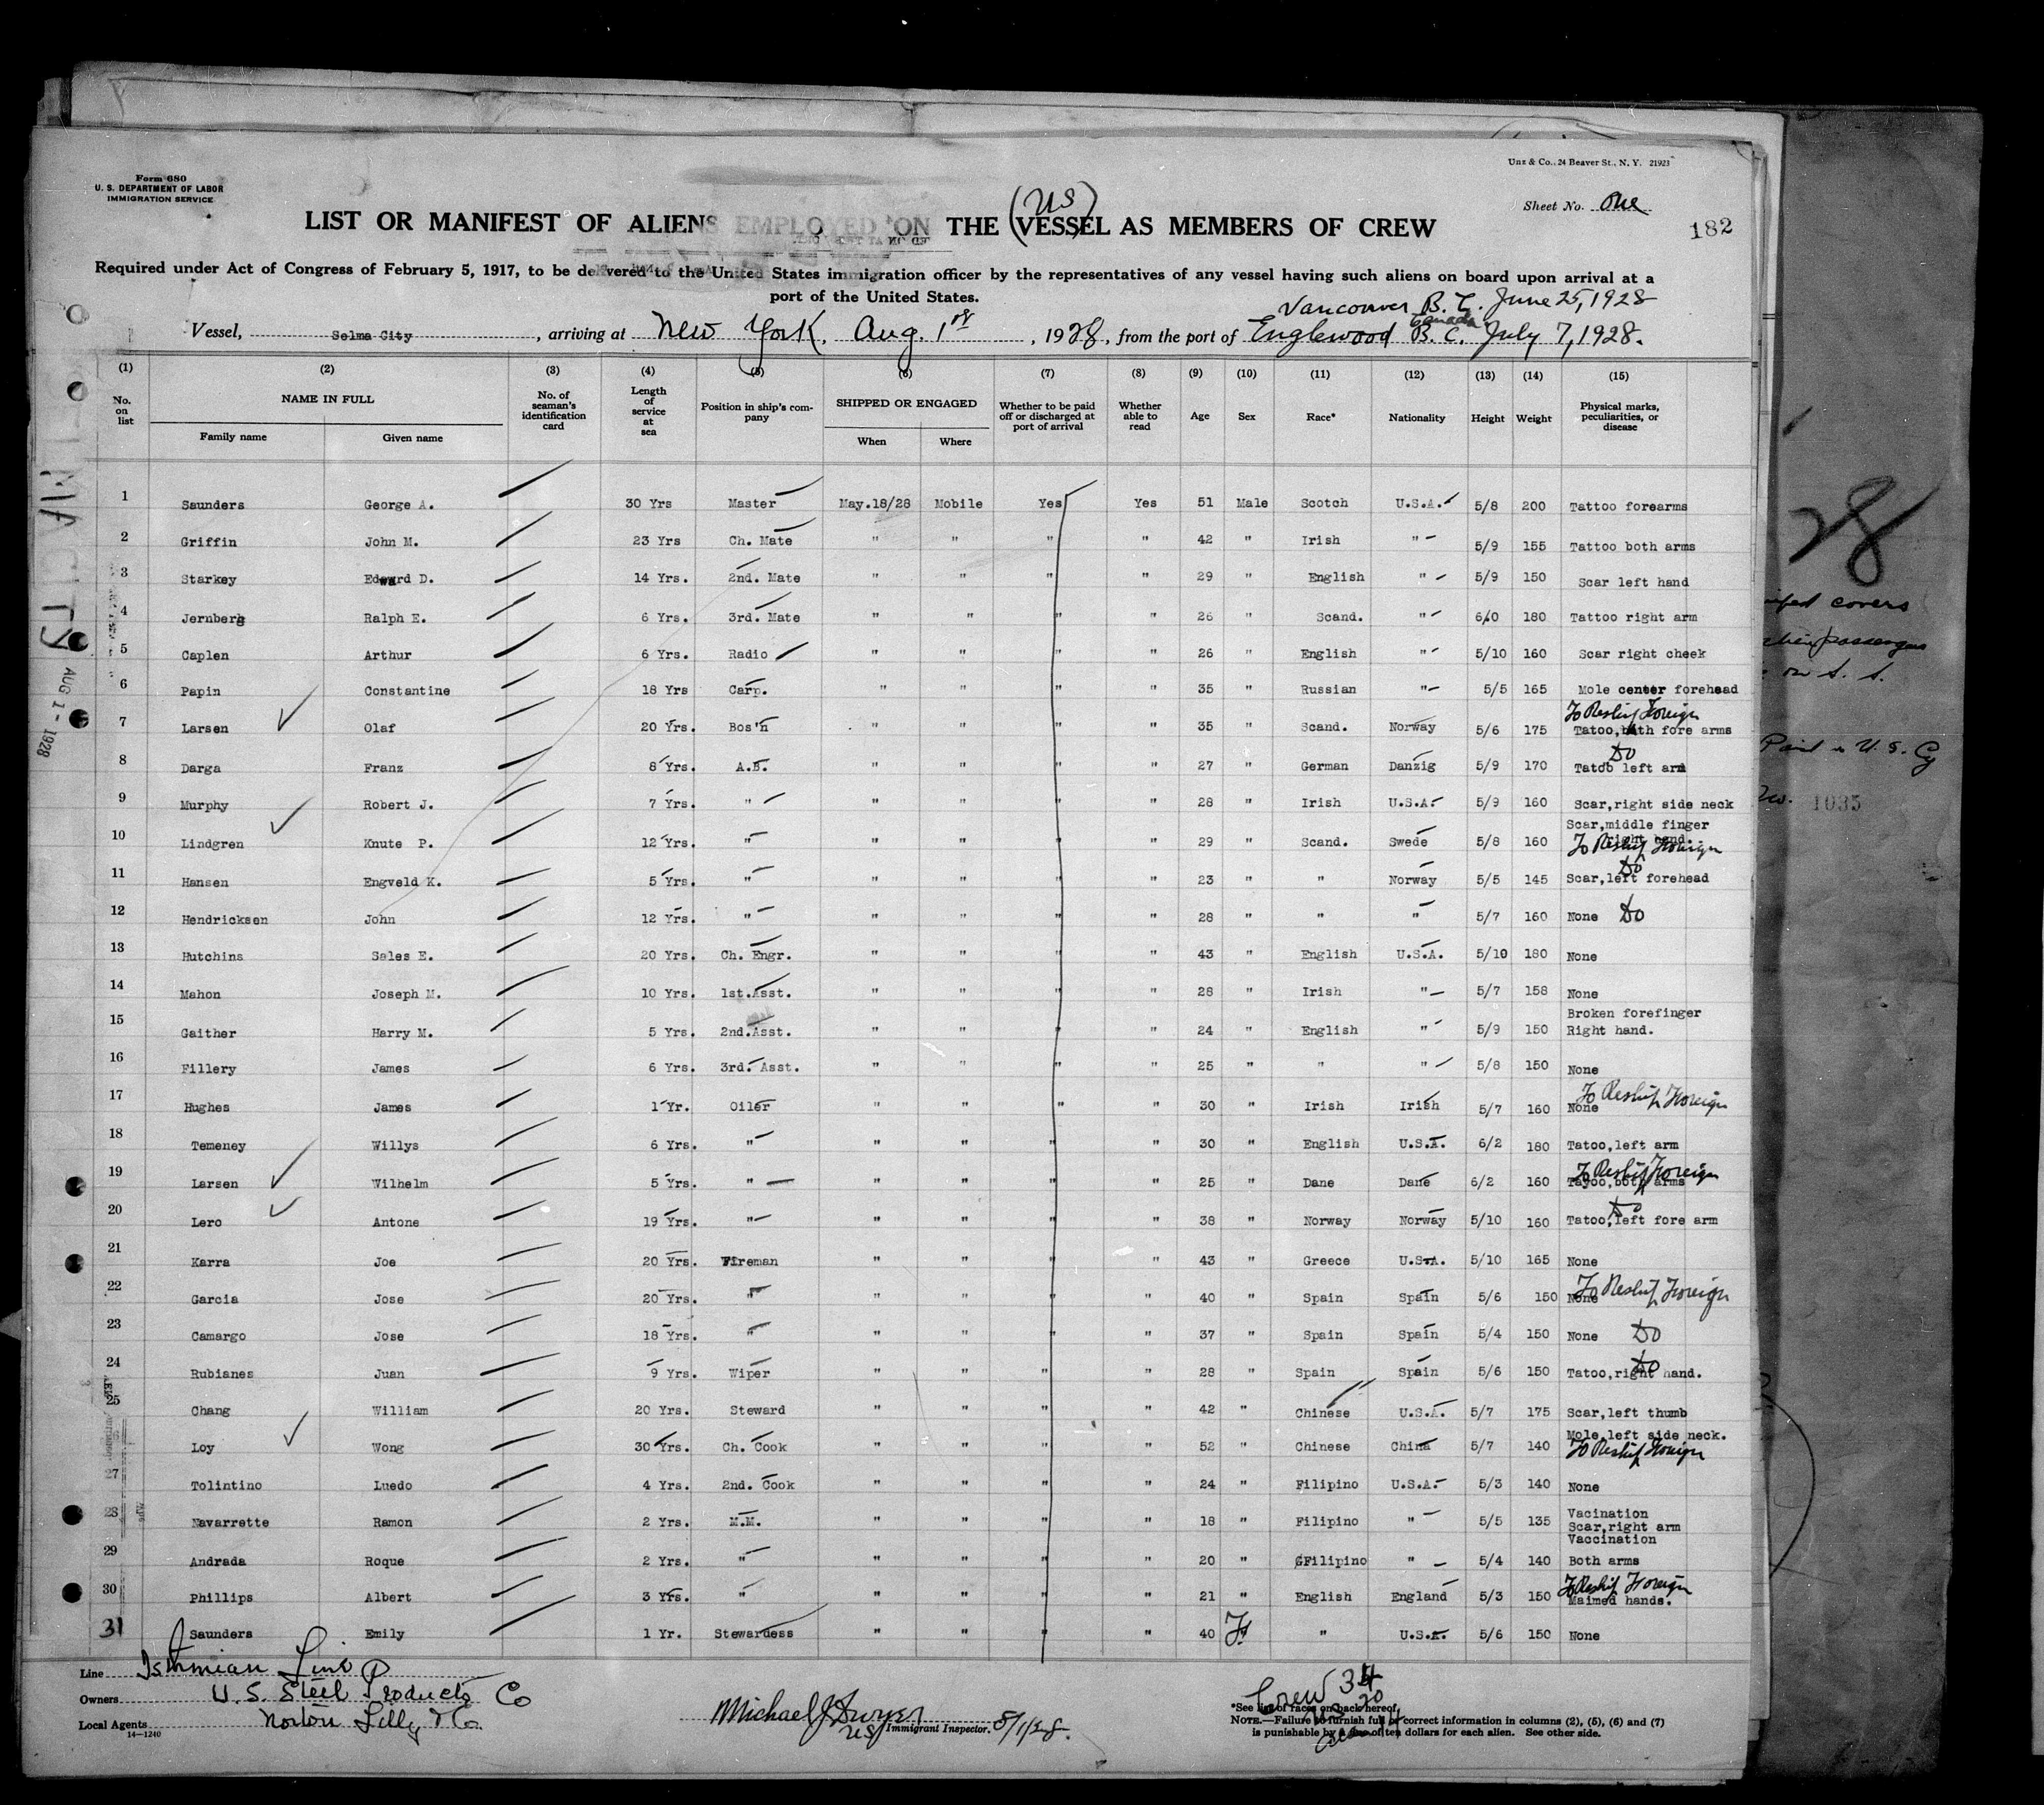 Unz & Co., 24 Beaver St., N. Y. 21923
Form 680
U. S. DEPARTMENT OF LABOR
IMMIGRATION SERVICE
Sheet No. One
182
(US)
LIST OR MANIFEST OF ALIENS EMPLOYED ON THE (VESSEL) AS MEMBERS OF CREW
Required under Act of Congress of February 5, 1917, to be delivered to the United States immigration officer by the representatives of any vessel having such aliens on board upon arrival at a
port of the United States.
Vancouver B. C. June 25, 1928
Vessel, Selma City, arriving at New York, Aug. 1st, 1928, from the port of Englewood B. C. Canada July 7, 1928.
(1) (2) (3) (4) (5) (6) (7) (8) (9) (10) (11) (12) (13) (14) (15)
No. on list NAME IN FULL Family name Given name No. of seaman's identification card Length of service at sea Position in ship's company SHIPPED OR ENGAGED When Where Whether to be paid off or discharged at port of arrival Whether able to read Age Sex Race* Nationality Height Weight Physical marks, peculiarities, or disease
1 Saunders George A. 30 Yrs Master May.18/28 Mobile Yes Yes 51 Male Scotch U.S.A. 5/8 200 Tattoo forearms
2 Griffin John M. 23 Yrs Ch. Mate " " " " 42 " Irish " 5/9 155 Tattoo both arms
3 Starkey Edward D. 14 Yrs. 2nd. Mate " " " " 29 " English " 5/9 150 Scar left hand
4 Jernberg Ralph E. 6 Yrs. 3rd. Mate " " " " 26 " Scand. " 6/0 180 Tattoo right arm
5 Caplen Arthur 6 Yrs. Radio " " " " 26 " English " 5/10 160 Scar right cheek
6 Papin Constantine 18 Yrs Carp. " " " " 35 " Russian " 5/5 165 Mole center forehead
7 Larsen Olaf 20 Yrs. Bos'n " " " " 35 " Scand. Norway 5/6 175 To Reship Foreign Tatoo,both fore arms
8 Darga Franz 8 Yrs. A.B. " " " " 27 " German Danzig 5/9 170 Do Tatoo left arm
9 Murphy Robert J. 7 Yrs. " " " " " 28 " Irish U.S.A. 5/9 160 Scar,right side neck
10 Lindgren Knute P. 12 Yrs. " " " " " 29 " Scand. Swede 5/8 160 Scar,middle finger right hand. To Reship Foreign
11 Hansen Engveld K. 5 Yrs. " " " " " 23 " " Norway 5/5 145 Do Scar,left forehead
12 Hendricksen John 12 Yrs. " " " " " 28 " " " 5/7 160 None Do
13 Hutchins Sales E. 20 Yrs. Ch. Engr. " " " " 43 " English U.S.A. 5/10 180 None
14 Mahon Joseph M. 10 Yrs. 1st.Asst. " " " " 28 " Irish " 5/7 158 None
15 Gaither Harry M. 5 Yrs. 2nd.Asst. " " " " 24 " English " 5/9 150 Broken forefinger Right hand.
16 Fillery James 6 Yrs. 3rd. Asst. " " " " 25 " " " 5/8 150 None
17 Hughes James 1 Yr. Oiler " " " " 30 " Irish Irish 5/7 160 To Reship Foreign None
18 Temeney Willys 6 Yrs. " " " " " 30 " English U.S.A. 6/2 180 Tatoo,left arm
19 Larsen Wilhelm 5 Yrs. " " " " " 25 " Dane Dane 6/2 160 To Reship Foreign Tatoo,both arms
20 Lero Antone 19 Yrs. " " " " " 38 " Norway Norway 5/10 160 Do Tatoo,left fore arm
21 Karra Joe 20 Yrs. Fireman " " " " 43 " Greece U.S.A. 5/10 165 None
22 Garcia Jose 20 Yrs. " " " " " 40 " Spain Spain 5/6 150 To Reship Foreign None
23 Camargo Jose 18 Yrs. " " " " " 37 " Spain Spain 5/4 150 None Do
24 Rubianes Juan 9 Yrs. Wiper " " " " 28 " Spain Spain 5/6 150 Do Tatoo,right hand.
25 Chang William 20 Yrs. Steward " " " " 42 " Chinese U.S.A. 5/7 175 Scar,left thumb
Loy Wong 30 Yrs. Ch. Cook " " " " 52 " Chinese China 5/7 140 Mole,left side neck. To Reship Foreign
27 Tolintino Luedo 4 Yrs. 2nd. Cook " " " " 24 " Filipino U.S.A. 5/3 140 None
28 Navarrette Ramon 2 Yrs. M.M. " " " " 18 " Filipino " 5/5 135 Vacination Scar,right arm
29 Andrada Roque 2 Yrs. " " " " " 20 " Filipino " 5/4 140 Vaccination Both arms
30 Phillips Albert 3 Yrs. " " " " " 21 " English England 5/3 150 To Reship Foreign Maimed hands.
31 Saunders Emily 1 Yr. Stewardess " " " " 40 F " U.S.A. 5/6 150 None
Line Isthmian Line
Owners U. S. Steel Products Co
Local Agents Norton Lilly & Co.
14—1240
Michael J Dwyer
US Immigrant Inspector. 8/1/28.
Crew
*See list of races on back hereof.
NOTE.—Failure to furnish full or correct information in columns (2), (5), (6) and (7)
is punishable by a fine of ten dollars for each alien. See other side.
AUG 1 - 1928
28
covers
passengers
on S. S.
Paid in U. S. Cy
No. 1035